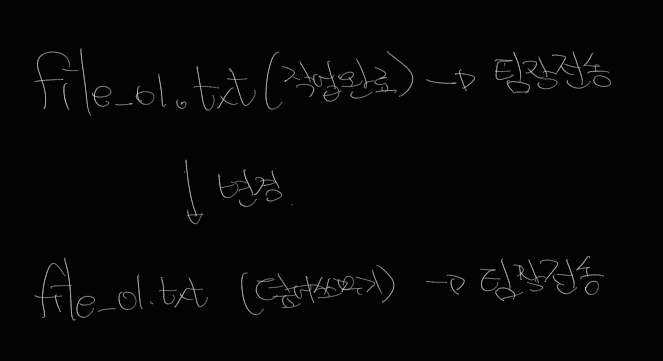 file_01.txt (작업완료) → 팀장전송
↓ 변경
file_01.txt (덮어쓰기) → 팀장전송